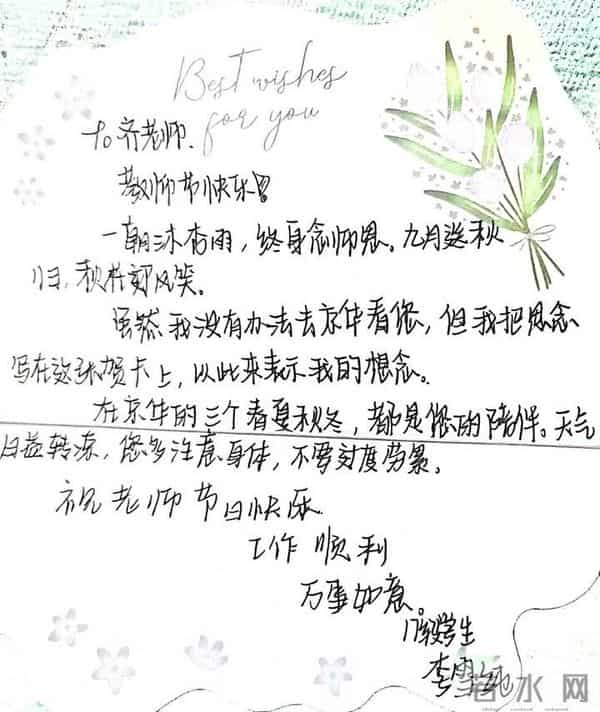 Best wishes
for you
to 齐老师.
教师节快乐!
一朝沐杏雨，终身念师恩。九月送秋
归，秋桂迎风笑。
虽然我没有办法去京华看您，但我把思念
写在这张贺卡上，以此来表示我的想念。
在京华的三个春夏秋冬，都是您的陪伴。天气
日益转凉，您多注意身体，不要过度劳累。
祝老师节日快乐
工作顺利
万事如意。
17级学生
李雪纯
若水网